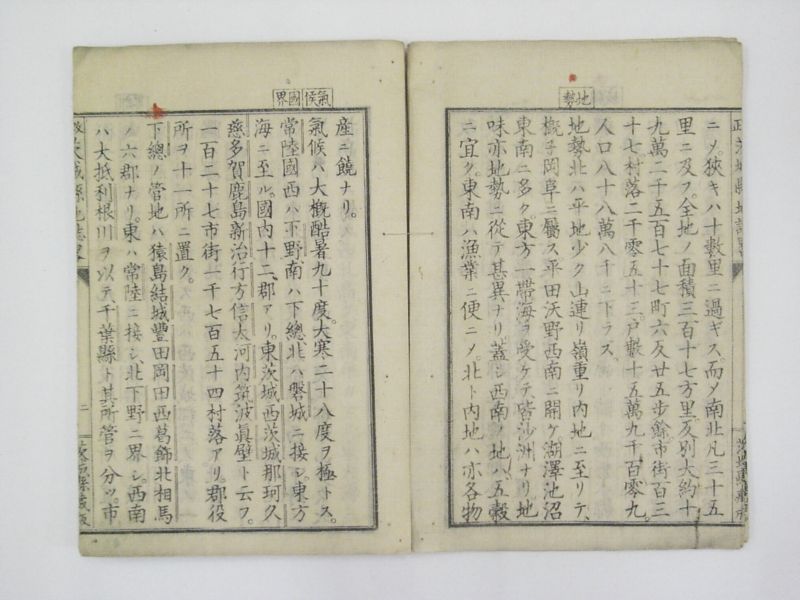 地勢
ニメ。狹キハ十數里ニ過ギス。而メ南北凡三十五
里ニ及フ。全地ノ面積三百十七方里反別大約十
九萬二千五百七十七町六反廿五歩餘市街百三
十七村落二千零五十三戸數十五萬九千百零九。
人口八十八萬八千ニ下ラス。
地勢北ハ平地少ク山連リ嶺重リ内地ニ至リテ、
概子岡草ニ屬ス平田沃野西南ニ開ケ湖澤池沼
東南ニ多ク。東方一帶海ヲ受ケテ、皆沙洲ナリ地
味亦地勢ニ從テ甚異ナリ。蓋シ西南ノ地ハ五穀
ニ宜ク。東南ハ漁業ニ便ニメ。北ト内地ハ亦各物
氣候
國界
産ニ饒ナリ。
氣候ハ大概酷暑九十度。大寒二十八度ヲ極トス。
常陸國西ハ下野南ハ下總北ハ磐城ニ接シ東方
海ニ至ル。國内十二郡アリ。東茨城西茨城那珂久
慈多賀鹿島新治行方信太河内筑波眞壁ト云フ。
一百二十七市街一千七百五十四村落アリ。郡役
所ヲ十一所ニ置ク。
下總ノ管地ハ猿島結城豐田岡田西葛飾北相馬
ノ六郡ナリ。東ハ常陸ニ接シ、北下野ニ界シ。西南
ハ大抵利根川ヲ以テ、千葉縣ト其所管ヲ分ツ。市
二